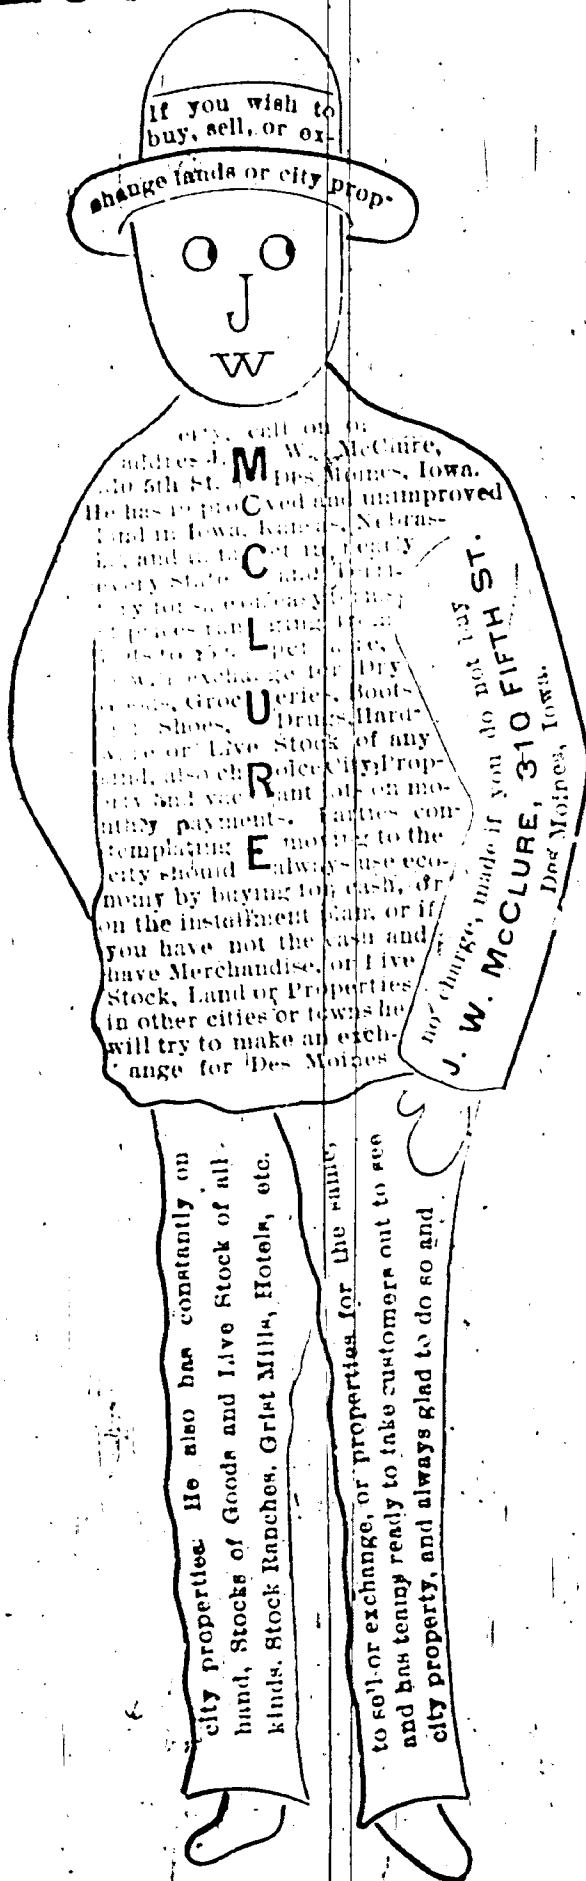 If you wish to
buy, sell, or ex-
change lands or city prop-
J
W
erty, call on or
address J. W. McClure,
310 5th St. Des Moines, Iowa.
He has improved and unimproved
land in Iowa, Kansas, Nebras-
and in
every State and Terri-
tory for
prices ranging from
to per
exchange for Dry
Goods, Groceries, Boots
Shoes, Drugs, Hard-
ware or Live Stock of any
kind, also choice City Prop-
erty and vacant lots on mo-
nthly payments. Parties con-
templating moving to the
city should always use eco-
nomy by buying for cash, or
on the installment plan, or if
you have not the cash and
have Merchandise, or Live
Stock, Land or Properties
in other cities or towns he
will try to make an exch-
ange for Des Moines
MCCLURE
city properties. He also has constantly on
hand, Stocks of Goods and Live Stock of all
kinds. Stock Ranches, Grist Mills, Hotels, etc.
to sell or exchange, or properties for the same,
and has teams ready to take customers out to see
city property, and always glad to do so and
no charge, made if you do not buy
J. W. McCLURE, 310 FIFTH ST.
Des Moines, Iowa.